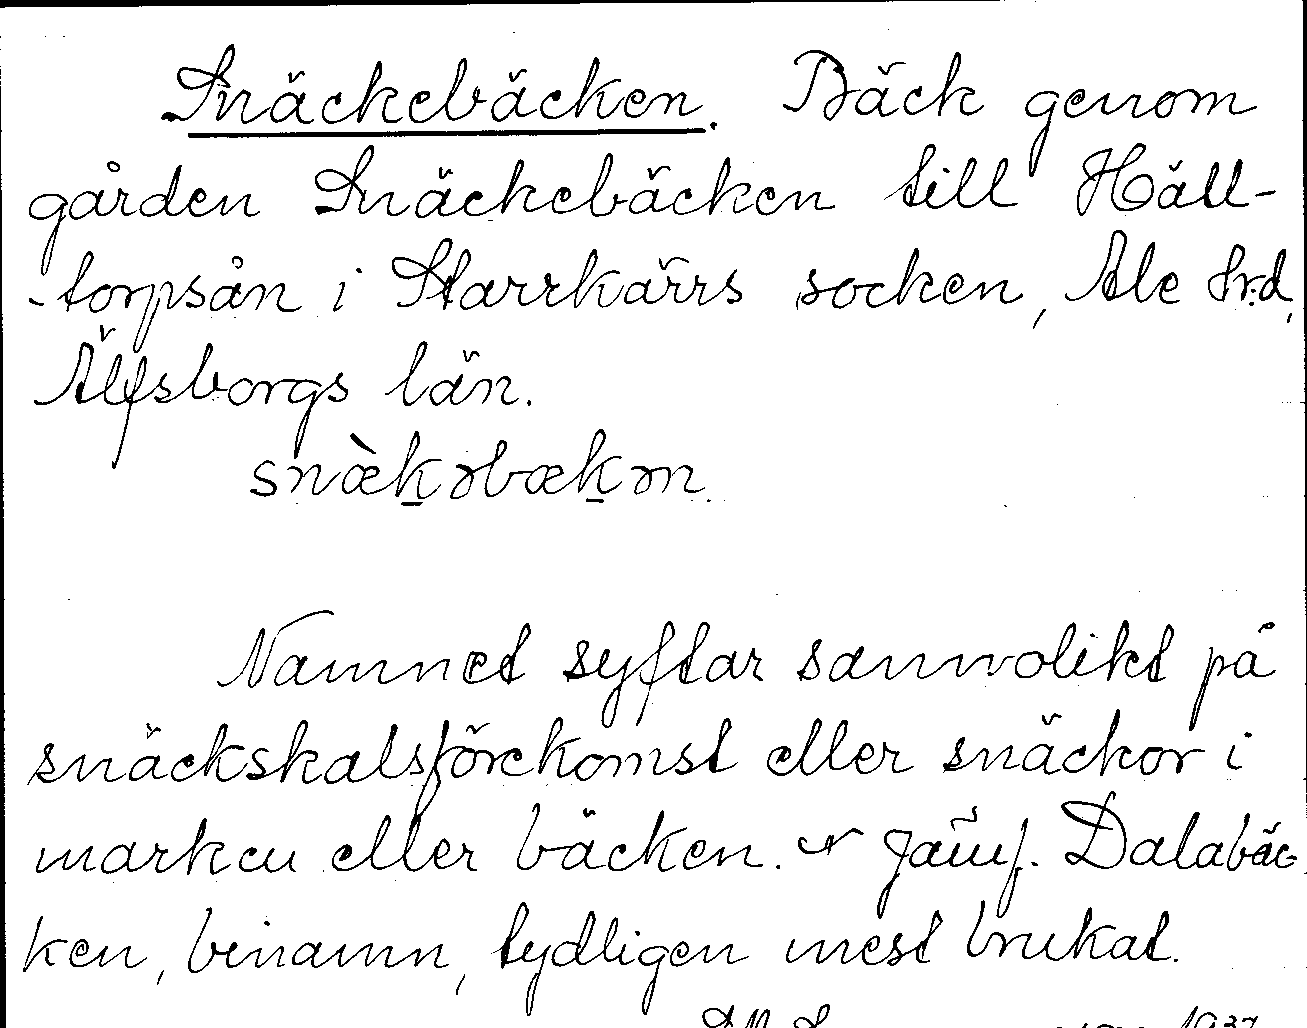 Snäckebäcken. Bäck genom
gården Snäckebäcken till Häll-
-torpsån i Starrkärrs socken, Ale hrd,
Älfsborgs län.
snæ̀k̲əbæk̲ən.
Namnet syftar sannolikt på
snäckskalsförekomst eller snäckor i
marken eller bäcken. Jämf. Dalabäc-
ken, binamn, tydligen mest brukat.
1937